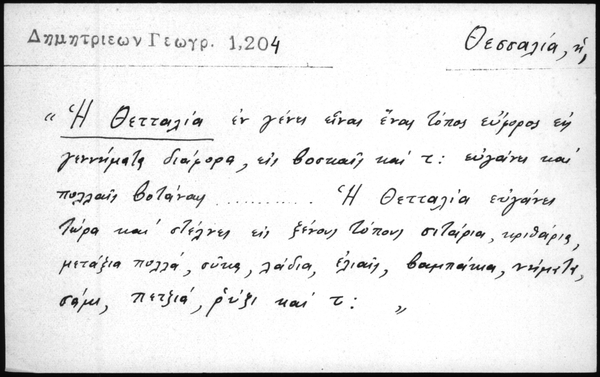 Δημητριεων Γεωγρ. 1,204
Θεσσαλία, ἡ,
“ Ἡ Θετταλία ἐν γένει εἶναι ἕνας τόπος εὔφορος εἰς
γεννήματα διάφορα, εἰς βοσκαῖς καὶ τ: εὐγάνει καὶ
πολλαῖς βοτάναις ............ Ἡ Θετταλία εὐγάνει
τώρα καὶ στέλνει εἰς ξένους τόπους σιτάρια, κριθάρια,
μετάξια πολλά, σῦκα, λάδια, ἐλιαῖς, βαμπάκια, νήματα,
πετζιά, ῥύζι καὶ τ: ”